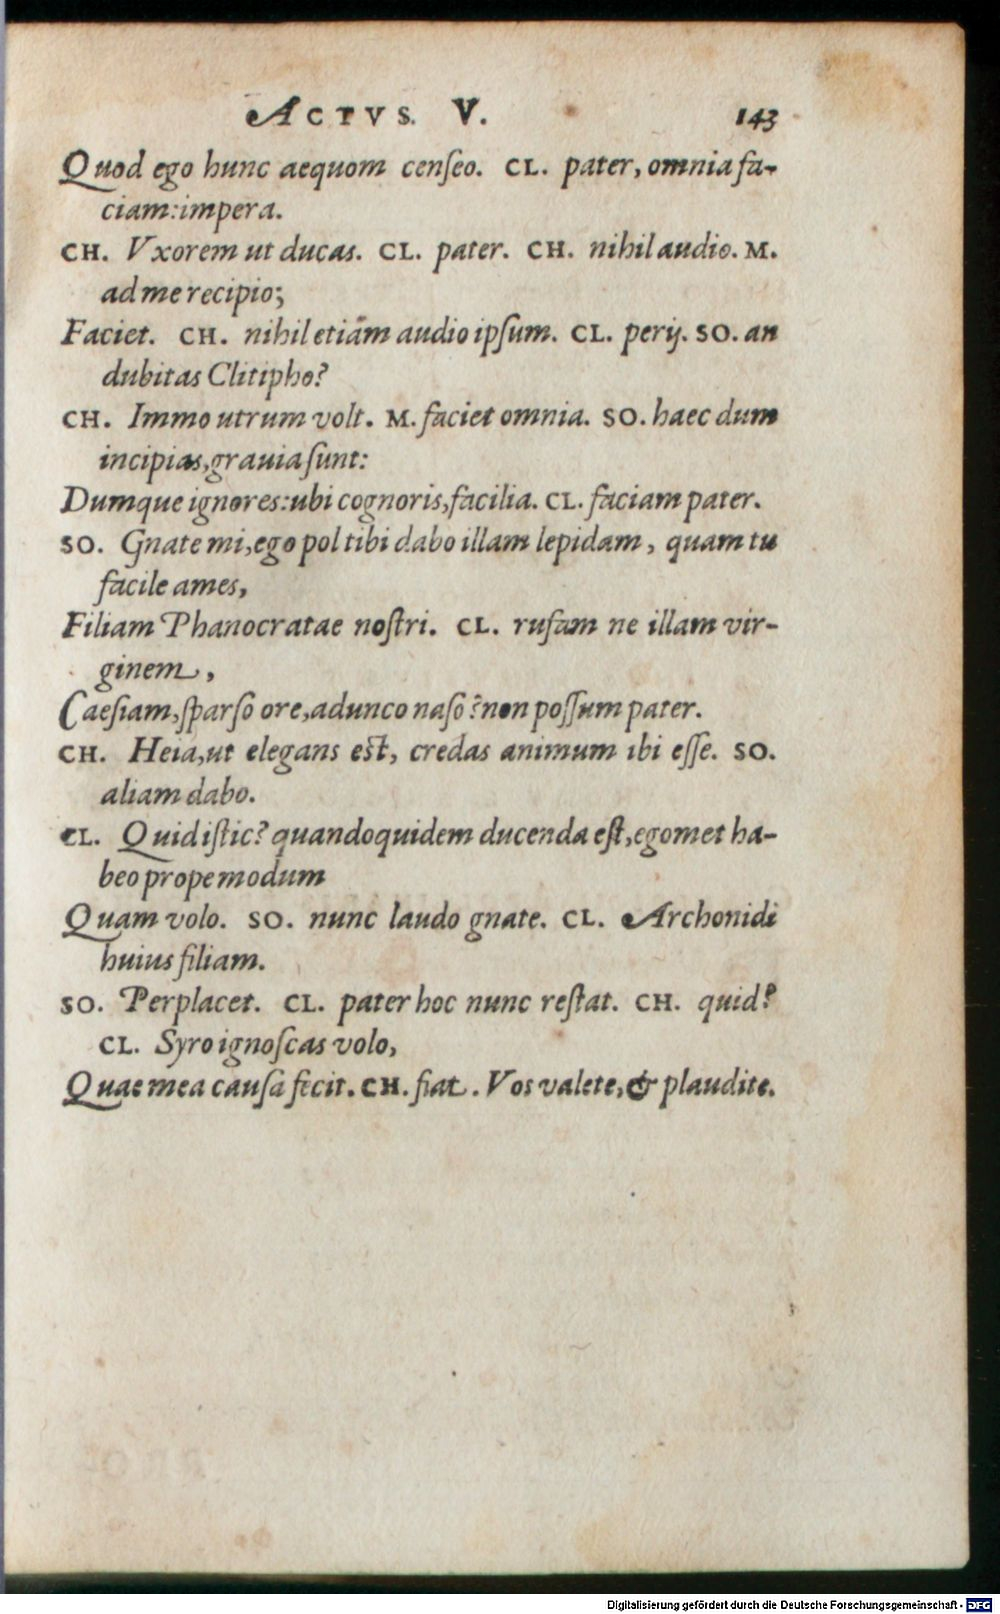 ACTVS. V. 143
Quod ego hunc aequom censeo. CL. pater, omnia fa-
ciam: impera.
CH. Vxorem ut ducas. CL. pater. CH. nihil audio. M.
ad me recipio;
Faciet. CH. nihil etiãm audio ipsum. CL. perij. SO. an
dubitas Clitipho?
CH. Immo utrum volt. M. faciet omnia. SO. haec dum
incipias, gravia sunt:
Dumque ignores: ubi cognoris, facilia. CL. faciam pater.
SO. Gnate mi, ego pol tibi dabo illam lepidam, quam tu
facile ames,
Filiam Phanocratae nostri. CL. rufam ne illam vir-
ginem,
Caesiam, sparso ore, adunco naso? non possum pater.
CH. Heia, ut elegans est, credas animum ibi esse. SO.
aliam dabo.
CL. Quid istic? quandoquidem ducenda est, egomet ha-
beo propemodum
Quam volo. SO. nunc laudo gnate. CL. Archonidi
huius filiam.
SO. Perplacet. CL. pater hoc nunc restat. CH. quid?
CL. Syro ignoscas volo,
Quae mea causa fecit. CH. fiat. Vos valete, & plaudite.
Digitalisierung gefördert durch die Deutsche Forschungsgemeinschaft - DFG